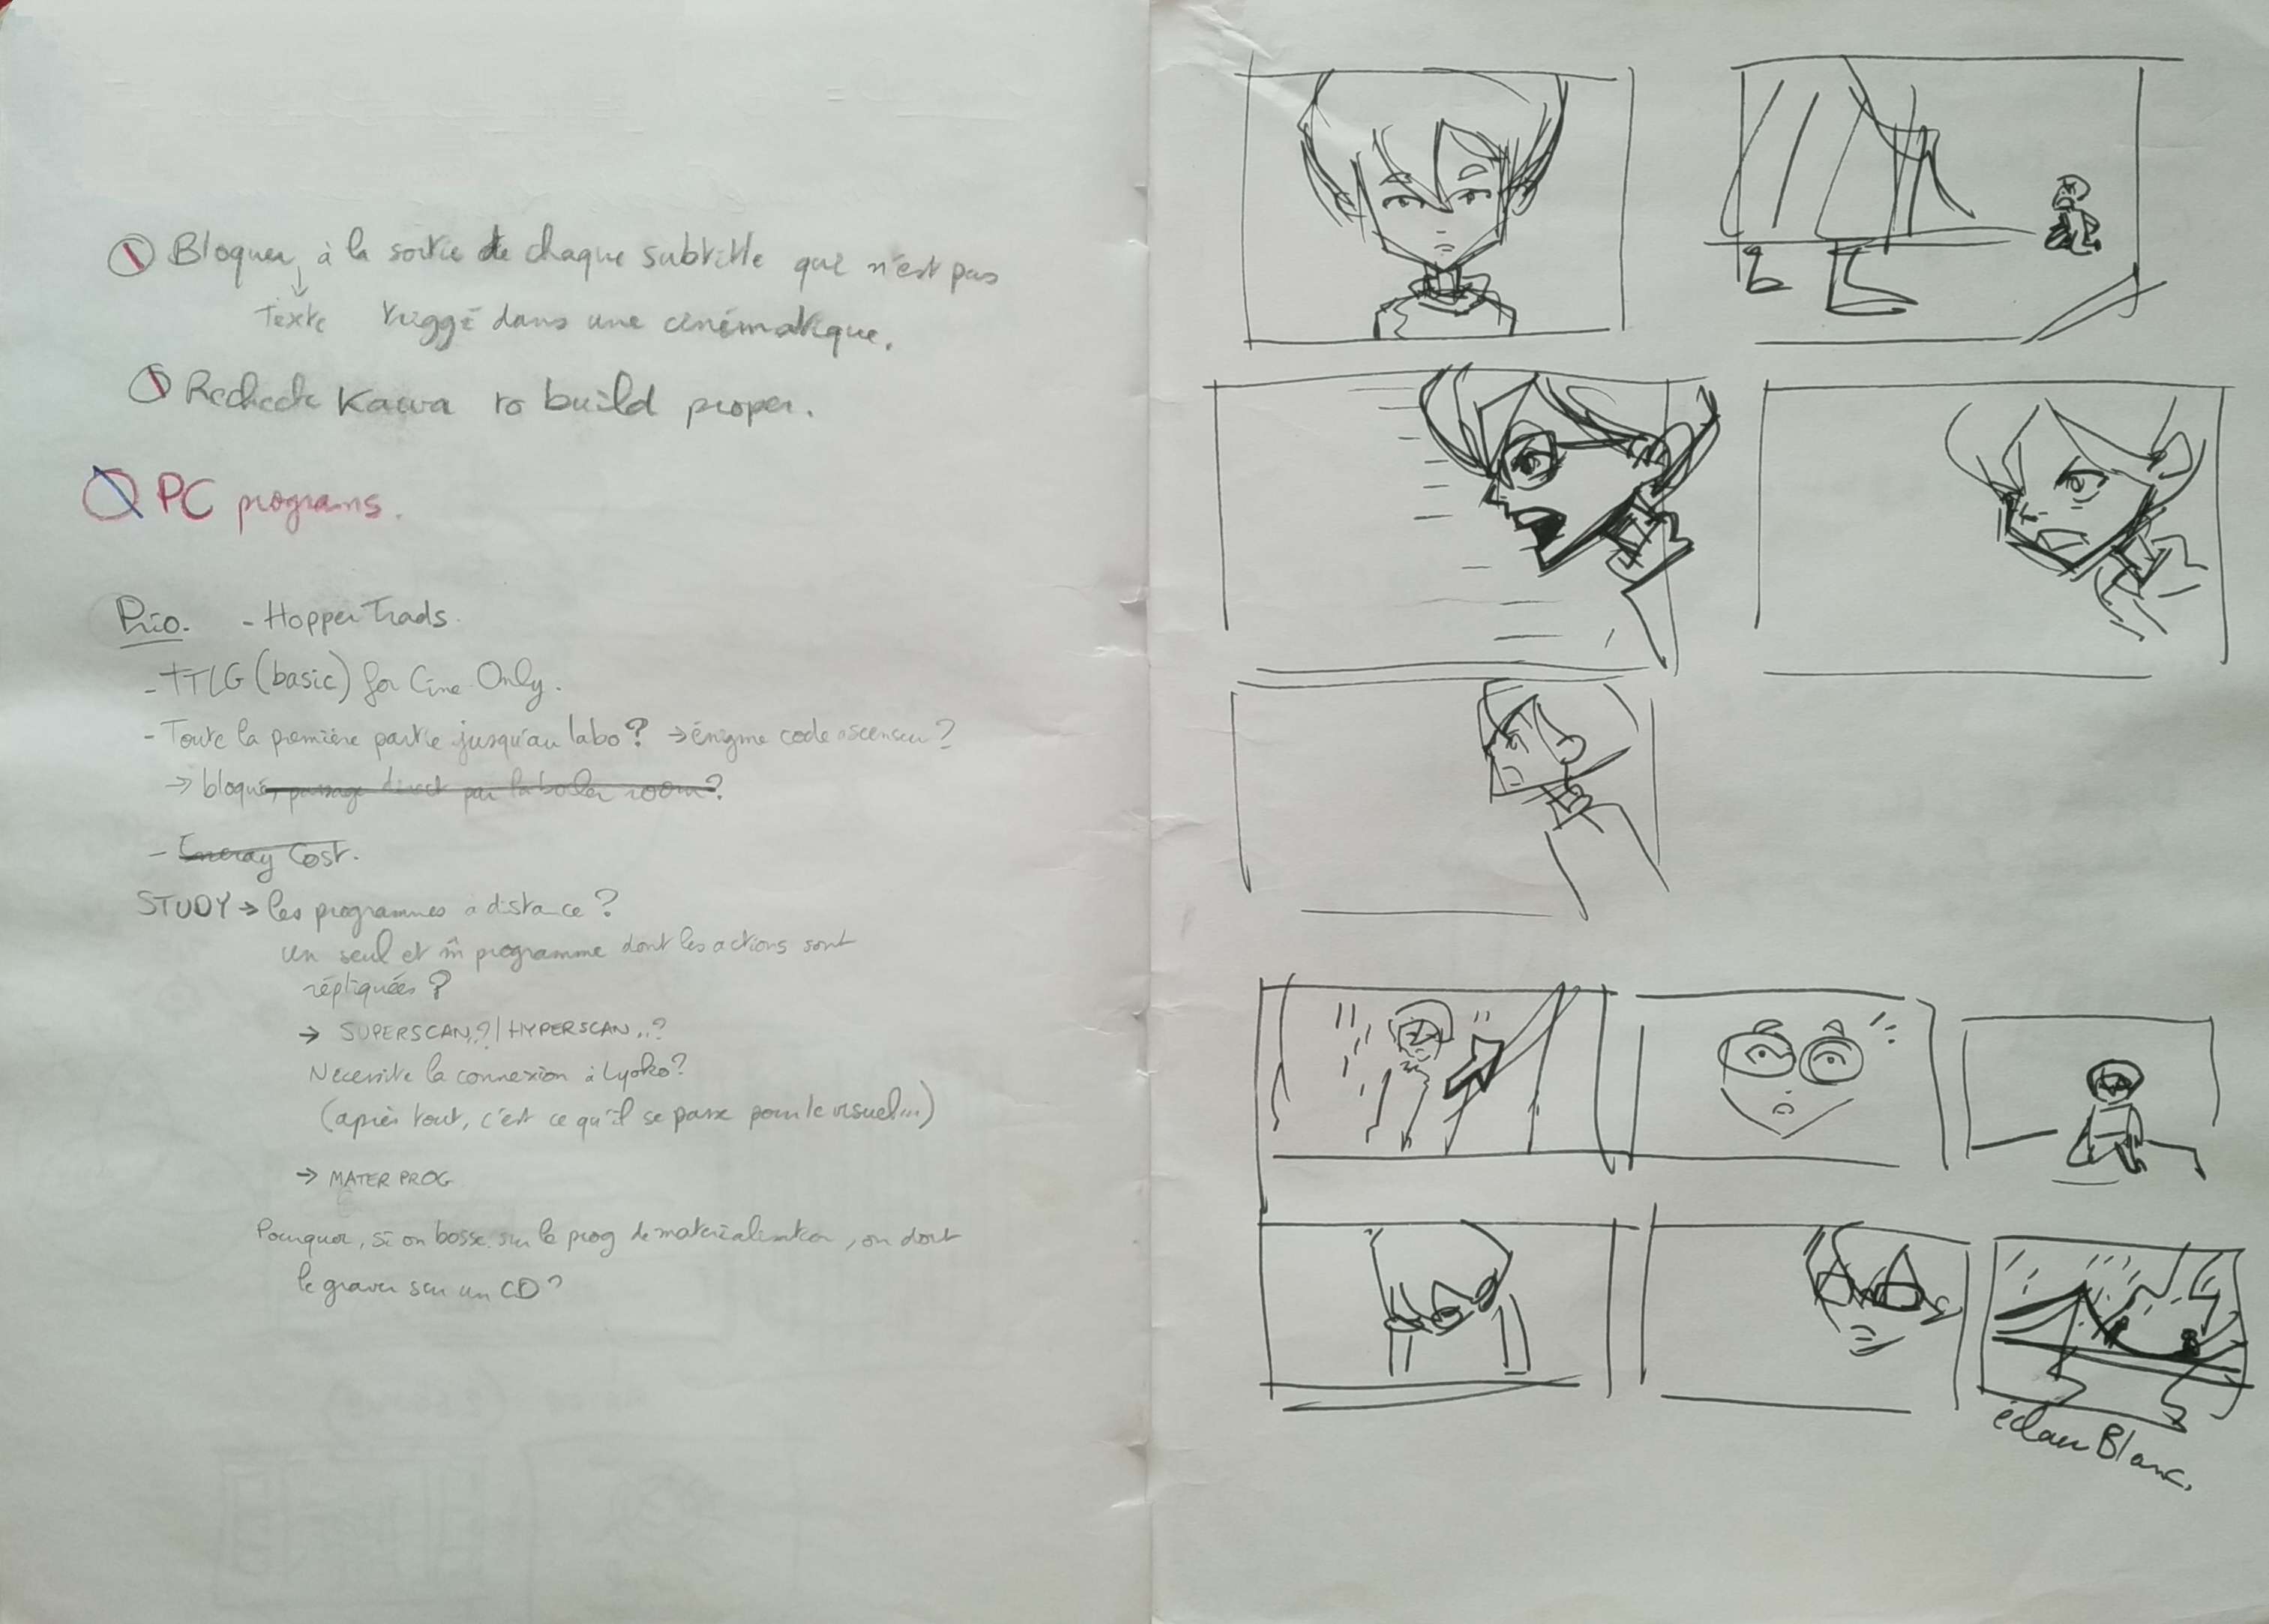 Bloquer à la sortie de chaque subtitle qui n'est pas
Texte triggé dans une cinématique.
Recheck Kawa to build proper.
PC programs.
Prio. - Hopper Trads.
- TTLG (basic) for Cine Only.
- Toute la première partie jusqu'au labo? → énigme code ascenseur?
→ bloqué, passage direct par la boiler room?
- Energy Cost.
STUDY → les programmes à distance?
un seul et m̂ programme dont les actions sont
répliquées?
→ SUPERSCAN..?/HYPERSCAN..?
Nécessite la connexion à Lyoko?
(après tout, c'est ce qu'il se passe pour le visuel...)
→ MATER PROG
Pourquoi, si on bosse sur le prog de matérialisation, on doit
le graver sur un CD?
éclair Blanc.